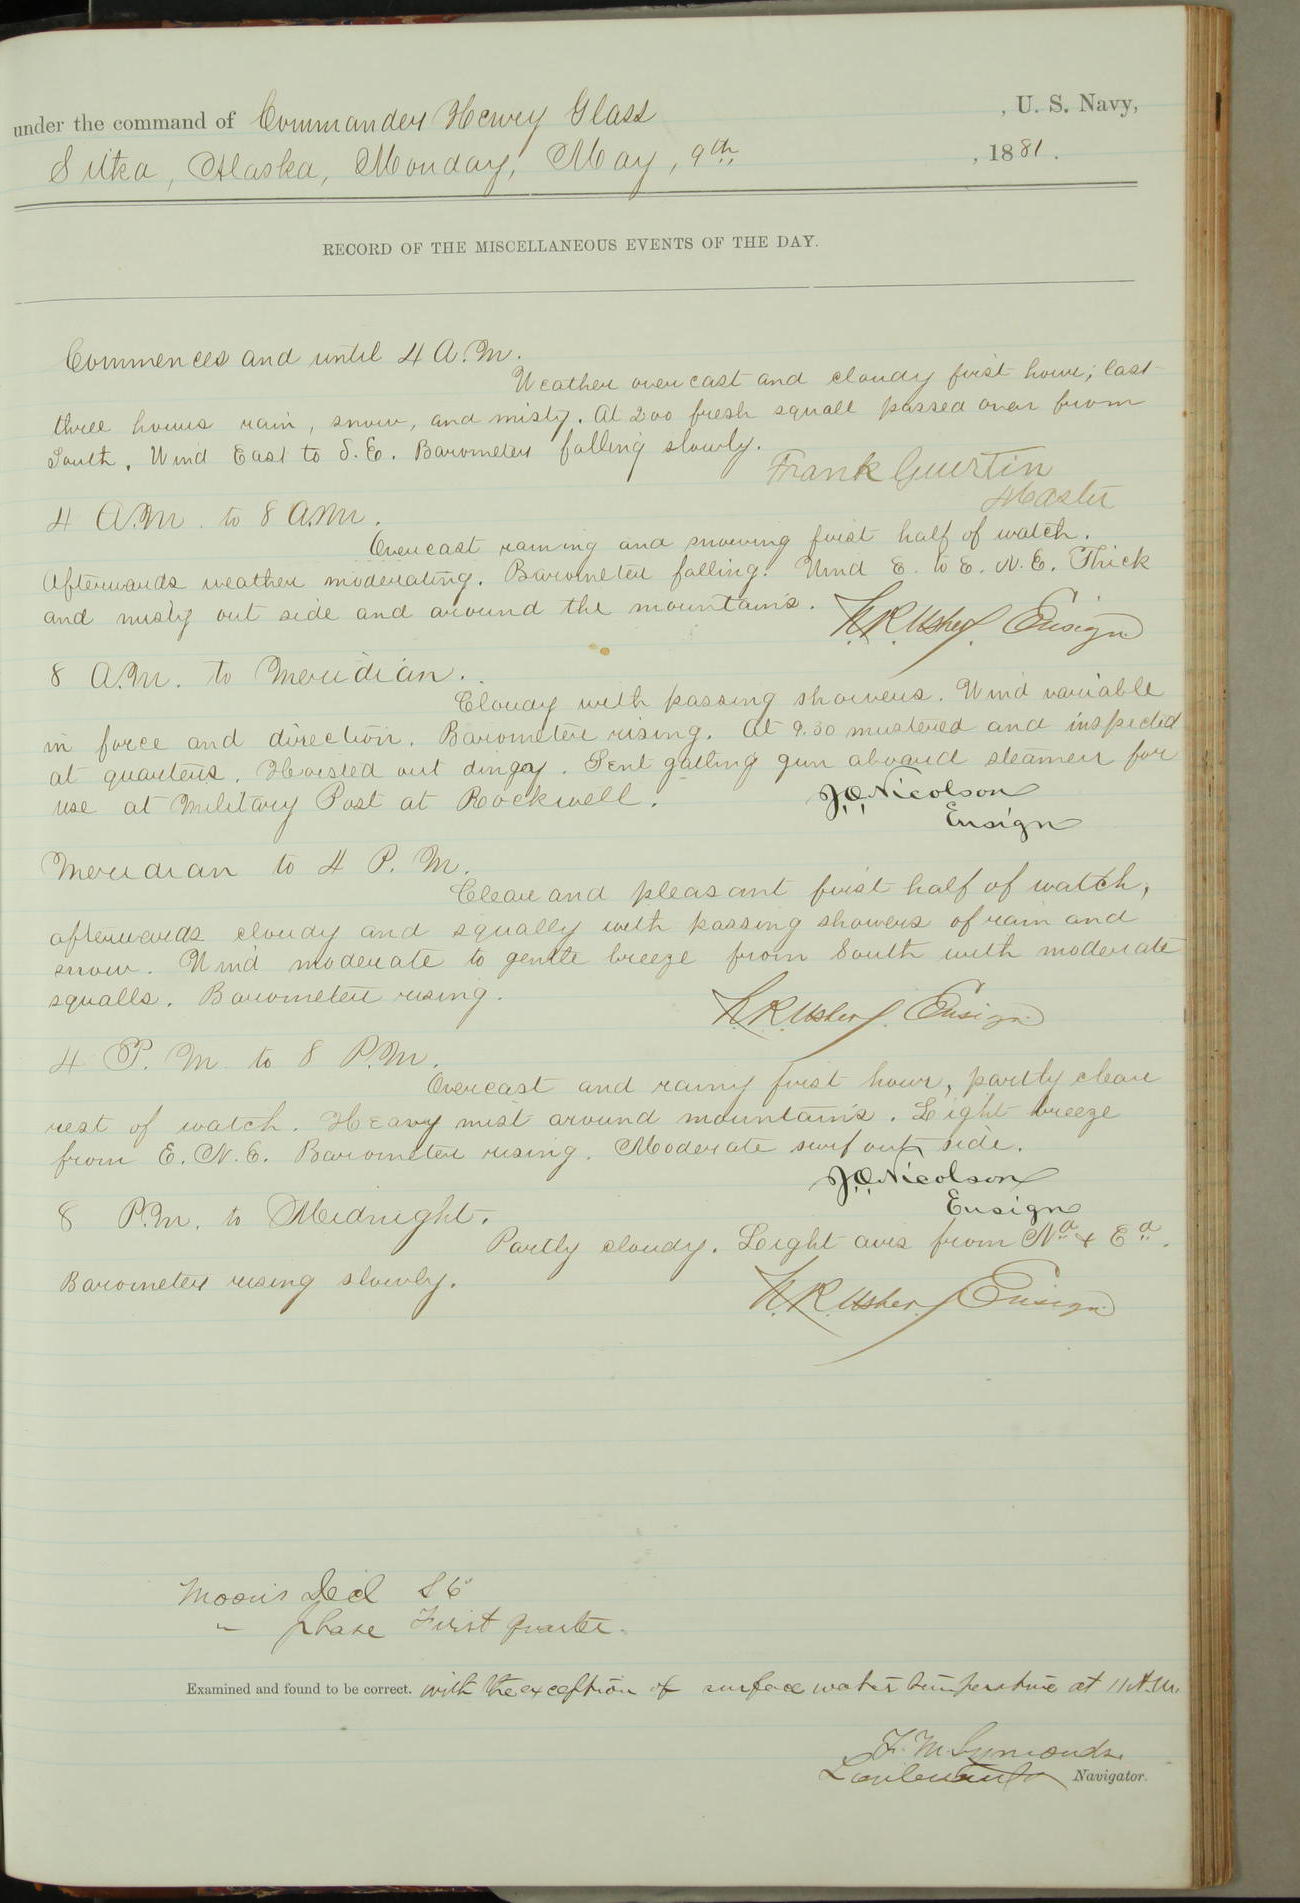 under the command of Commander Henry Glass , U. S. Navy,
Sitka, Alaska, Monday, May, 9th , 1881.
RECORD OF THE MISCELLANEOUS EVENTS OF THE DAY.
Commences and until 4 A.M.
Weather overcast and cloudy first hour; last
three hours rain, snow, and misty. At 2.00 fresh squall passed over from
South. Wind East to S.E. Barometer falling slowly.
Frank Guertin
Master
4 A.M. to 8 A.M.
Overcast raining and snowing first half of watch.
Afterwards weather moderating. Barometer falling. Wind E. to E.N.E. Thick
and misty out side and around the mountains. N.R. Usher, Ensign
8 A.M. to Meridian.
Cloudy with passing showers. Wind variable
in force and direction. Barometer rising. At 9.30 mustered and inspected
at quarters. Hoisted out dingy. Sent gatling gun aboard steamer for
use at Military Post at Rockwell. J.O. Nicolson
Ensign
Meridian to 4 P.M.
Clear and pleasant first half of watch,
afterwards cloudy and squally with passing showers of rain and
snow. Wind moderate to gentle breeze from South with moderate
squalls. Barometer rising. N.R. Usher, Ensign
4 P.M. to 8 P.M.
Overcast and rainy first hour, partly clear
rest of watch. Heavy mist around mountains. Light breeze
from E.N.E. Barometer rising. Moderate surf out side.
J.O. Nicolson
Ensign
8 P.M. to Midnight.
Partly cloudy. Light airs from Nd & Ed.
Barometer rising slowly. N.R. Usher, Ensign
Moon's Decl S 6°
" phase First quarter.
Examined and found to be correct. with the exception of surface water temperature at 11 A.M.
F.M. Symonds.
Lieutenant Navigator.